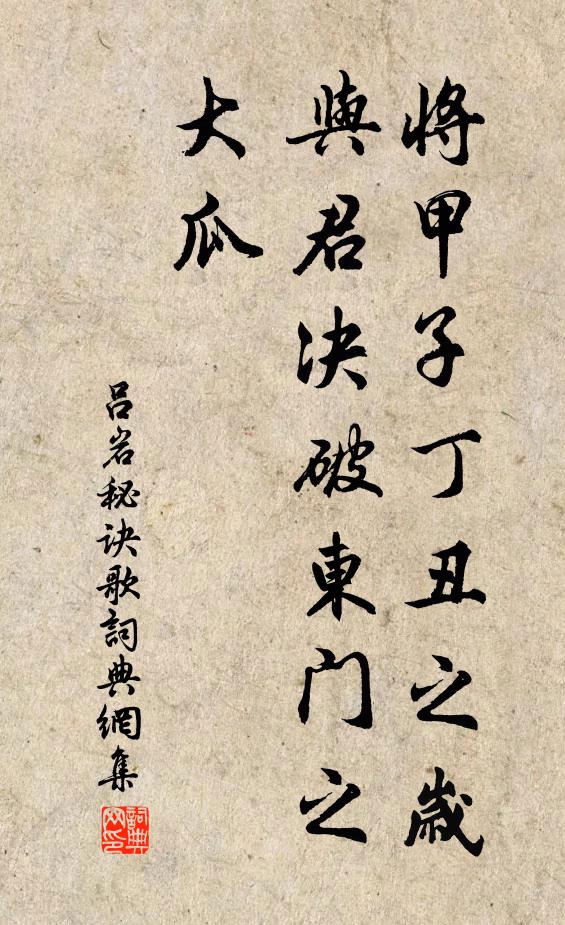 將甲子丁丑之歲
與君决破東门之
大瓜
吕岩秘訣歌詞典網集
詞典网印